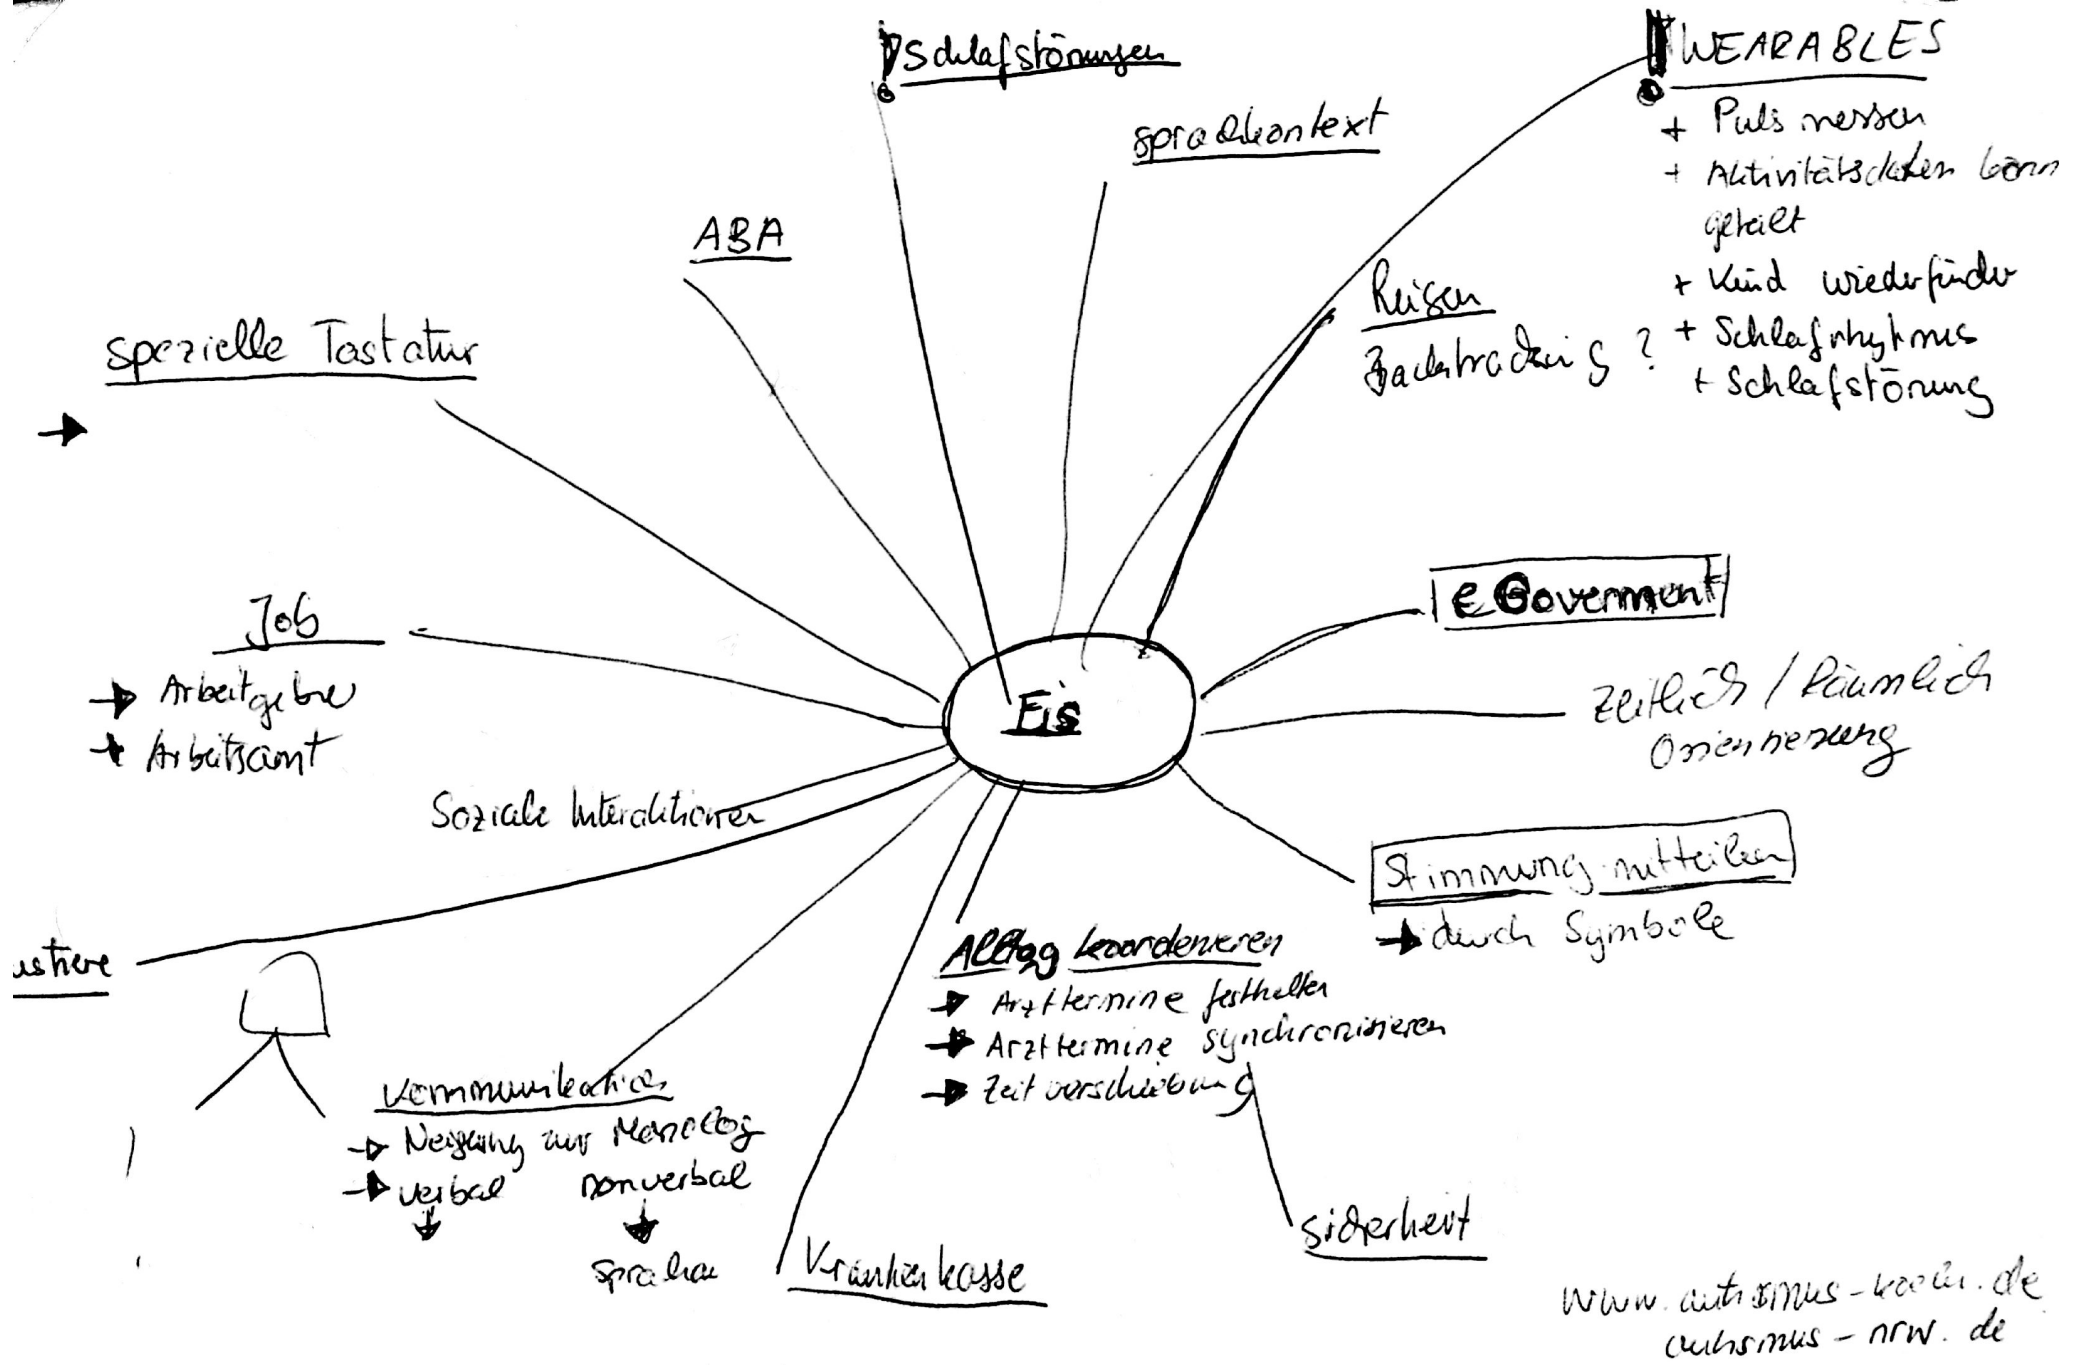 Schlafstörungen
WEARABLES
+ Puls messen
+ Aktivitätsdaten kann
geteilt
+ Kind wiederfinden
+ Schlafrhytmus
+ Schlafstörung
sprachkontext
ABA
Reisen
spezielle Tastatur
e Goverment
Job
→ Arbeitgeber
→ Arbeitsamt
Eis
zeitlich / Räumlich
Orientierung
Soziale Interaktionen
Stimmung mitteilen
→ durch Symbole
ustiere
Alltag koordenieren
→ Arzttermine festhalten
→ Arzttermine synchronisieren
→ Zeitverschiebung
Kommunikation
→ Neigung zur Monolog
→ verbal nonverbal
Krankenkasse
Sicherheit
www.autismus-koeln.de
autismus-nrw.de